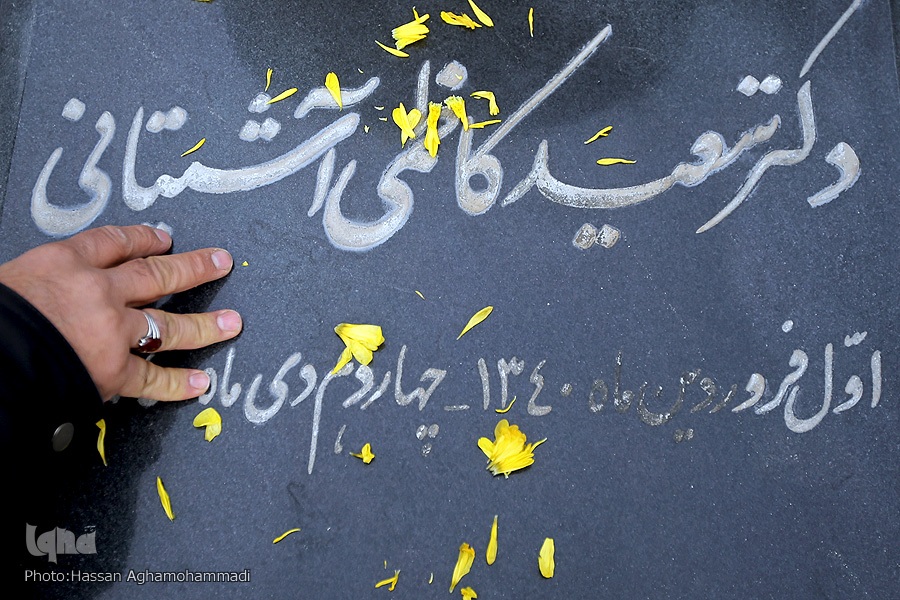 دکتر سعید کاظمی آشتیانی
اوّل فروردین ماه ۱۳۴۰ - چهاردهم دی ماه
iqna
Photo:Hassan Aghamohammadi